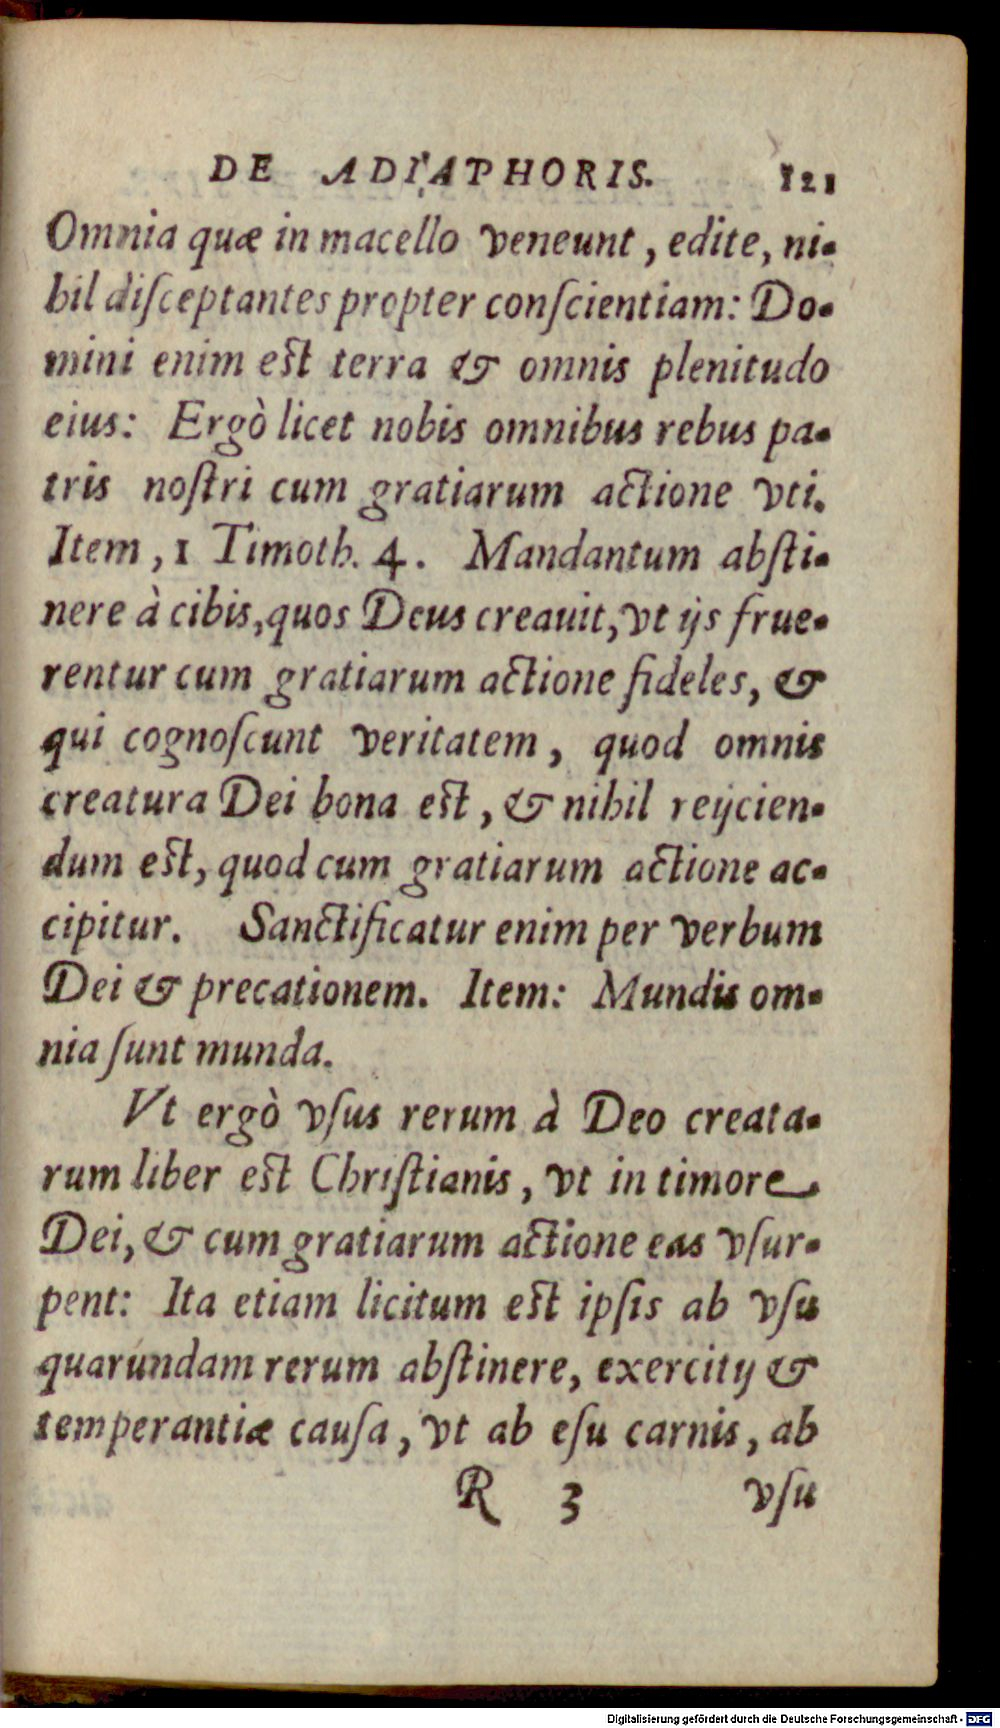 DE ADIAPHORIS. 121
Omnia quæ in macello veneunt, edite, ni-
hil diſceptantes propter conſcientiam: Do-
mini enim est terra & omnis plenitudo
eius: Ergò licet nobis omnibus rebus pa-
tris noſtri cum gratiarum actione vti.
Item, 1 Timoth. 4. Mandantum abſti-
nere à cibis, quos Deus creauit, vt ijs frue-
rentur cum gratiarum actione fideles, &
qui cognoſcunt veritatem, quod omnis
creatura Dei bona est, & nihil reijcien-
dum est, quod cum gratiarum actione ac-
cipitur. Sanctificatur enim per verbum
Dei & precationem. Item: Mundis om-
nia ſunt munda.
Vt ergò vſus rerum à Deo creata-
rum liber est Chriſtianis, vt in timore
Dei, & cum gratiarum actione eas vſur-
pent: Ita etiam licitum est ipſis ab vſu
quarundam rerum abſtinere, exercitij &
temperantiæ cauſa, vt ab eſu carnis, ab
R 3 vſu
Digitalisierung gefördert durch die Deutsche Forschungsgemeinschaft - DFG